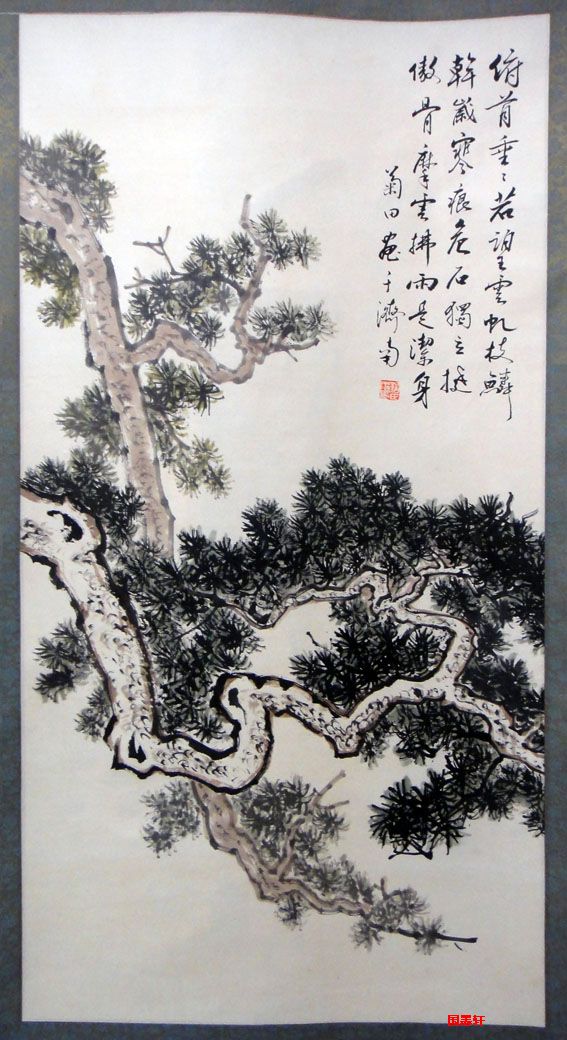 俯首垂〻若望雲虬枝鱗
幹嵗寒痕危石獨立挺
傲骨摩雲拂雨是潔身
菊田于濟南
国墨轩